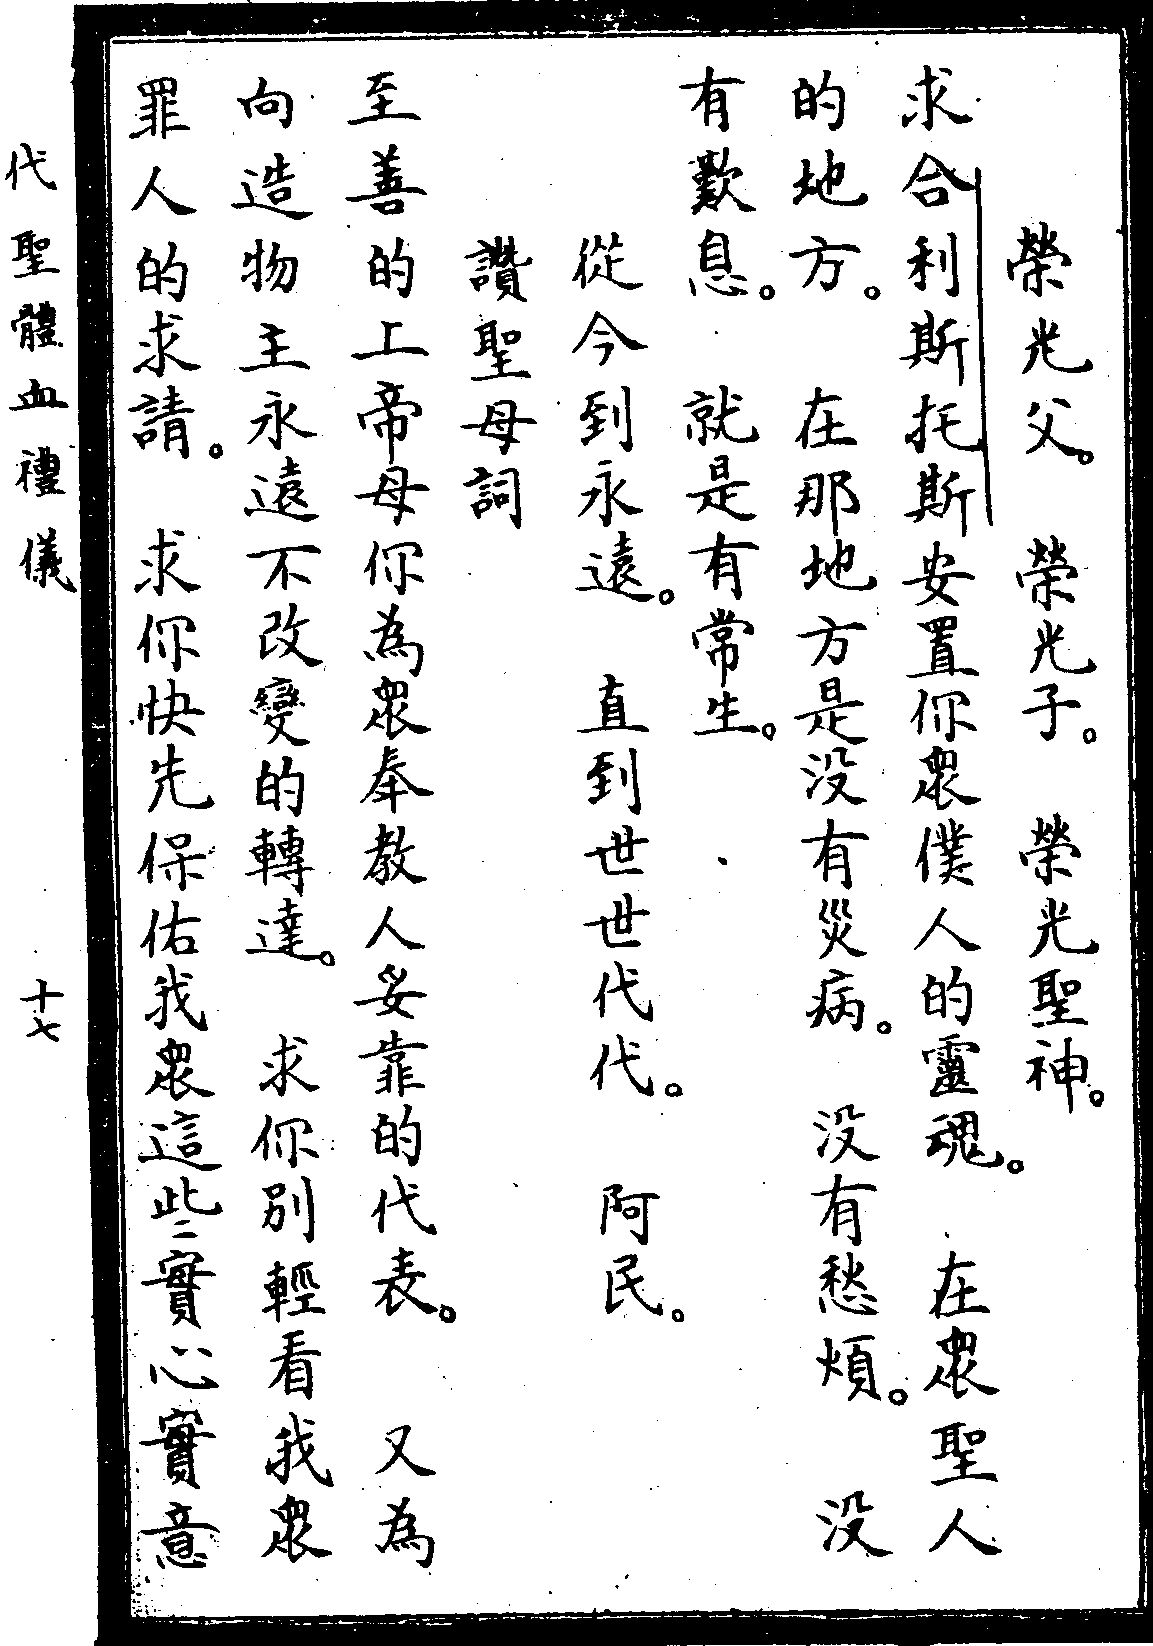 榮光父。　榮光子。　榮光聖神。
求合利斯托斯安置你眾僕人的靈魂。　在眾聖人
的地方。　在那地方是没有災病。　没有愁煩。　没
有歎息。　就是有常生。
從今到永遠。　直到世世代代。　阿民。
讚聖母詞
至善的上帝母你為眾奉教人妥靠的代表。　又為
向造物主永遠不改變的轉達。　求你別輕看我眾
罪人的求請。　求你快先保佑我眾這些實心實意
代聖體血禮儀
十七